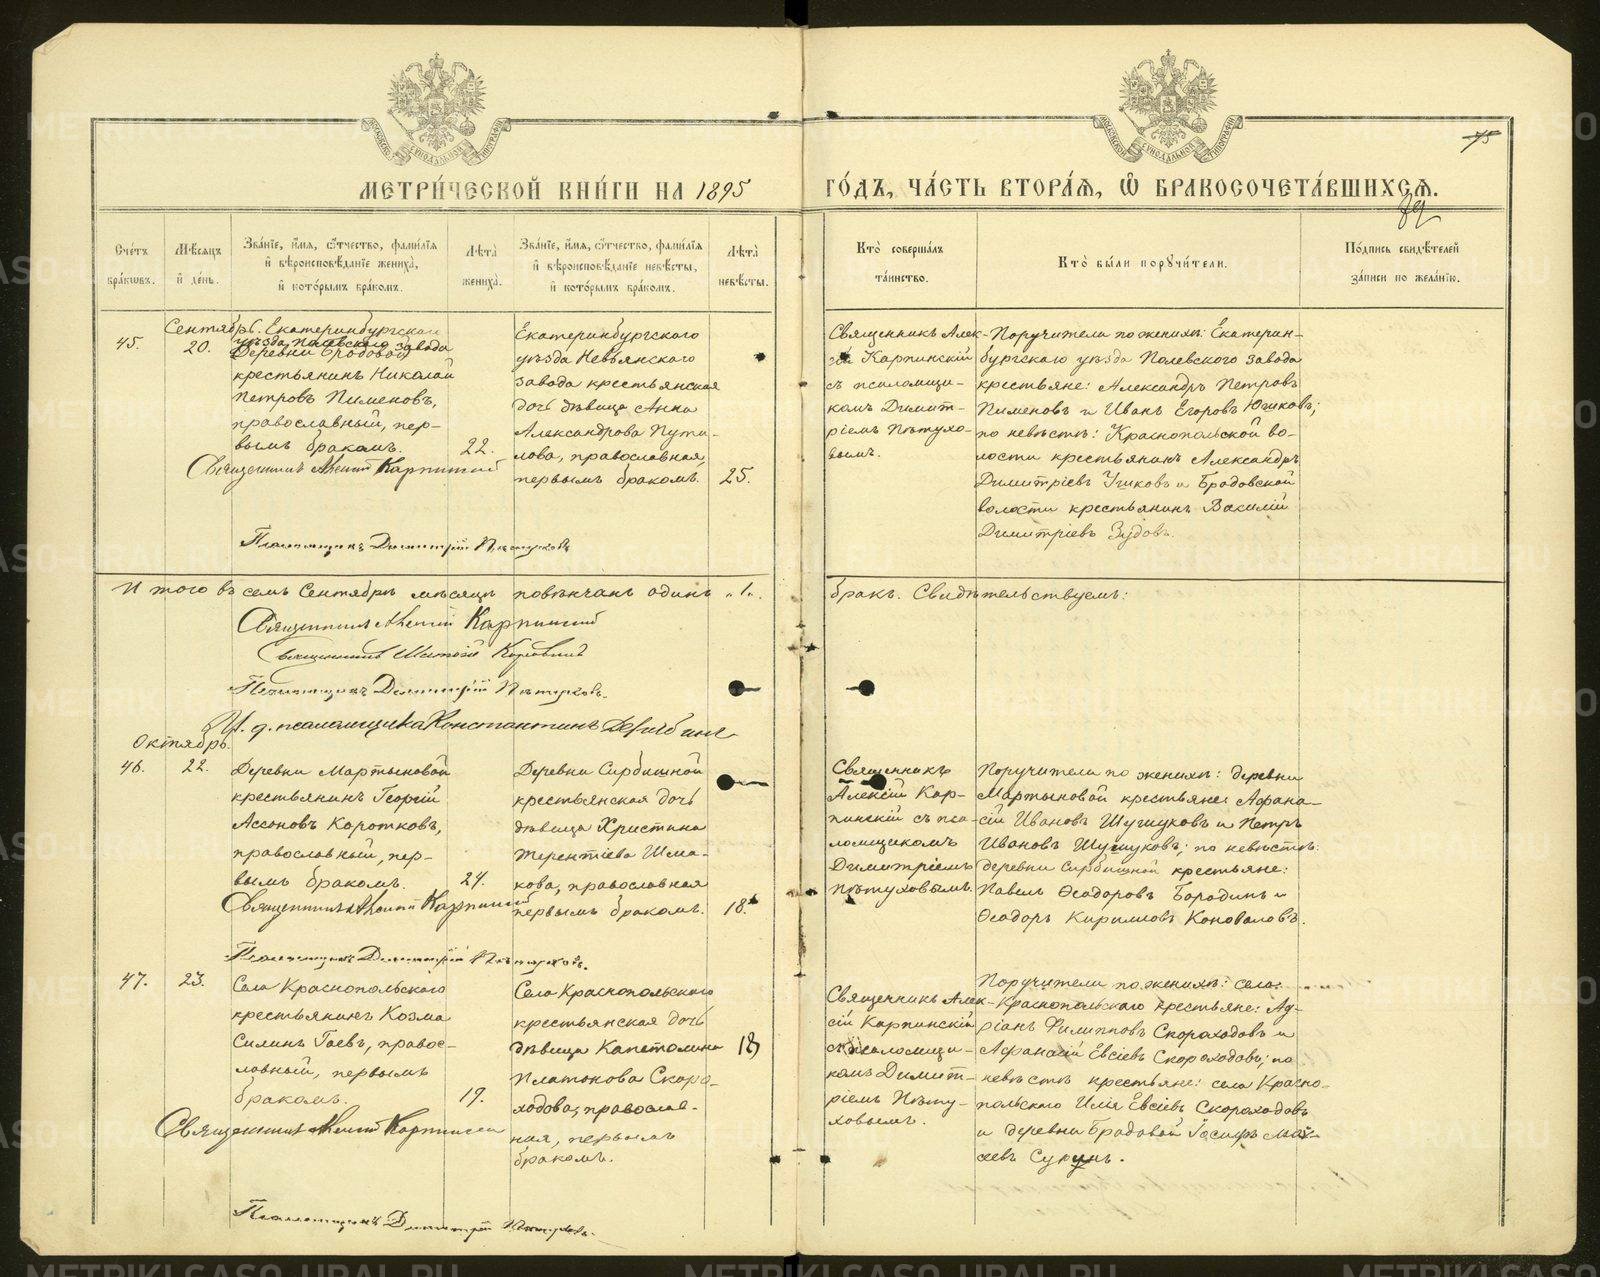 МЕТРИ́ЧЕСКОЙ КНИ́ГИ НА 1895 ГО́ДЪ, ЧА́СТЬ ВТОРА́Я, Ѡ БРАКОСОЧЕТА́ВШИХСЯ.
75
Сче́тъ бра́кωвъ.
Мѣ́сяцъ и҆ де́нь.
Зва́нїе, и҆́мя, ѻ҆́тчество, фами́лїя
и҆ вѣроисповѣ́данїе жениха̀,
и҆ кото́рымъ бра́комъ.
Лѣта̀ жениха̀.
Зва́нїе, и҆́мя, ѻ҆́тчество, фами́лїя
и҆ вѣроисповѣ́данїе невѣ́сты,
и҆ кото́рымъ бра́комъ.
Лѣта̀ невѣ́сты.
Кто̀ соверша́лъ та́инство.
Кто̀ бы́ли поручи́тели.
По́дпись свидѣ́телей
за́писи по жела́нїю.
45.
Сентябрь
20.
Екатеринбургскаго
уѣзда Полевского завода
Деревни Бродовой
крестьянинъ Николай
Петровъ Пименовъ,
православный, пер-
вымъ бракомъ.
22.
Екатеринбургскаго
уѣзда Невьянскаго
завода крестьянская
дочь дѣвица Анна
Александрова Пути-
лова, православная,
первымъ бракомъ.
25.
Священникъ Алек-
сій Карпинскій
съ псаломщи-
комъ Димит-
ріемъ Пѣтухо-
вымъ.
Поручители по женихѣ: Екатерин-
бургскаго уѣзда Полевского завода
крестьяне: Александръ Петровъ
Пименовъ и Иванъ Егоровъ Юшковъ;
по невѣстѣ: Краснопольской во-
лости крестьянинъ Александръ
Димитріевъ и Бродовской
волости крестьянинъ Василій
Димитріевъ Зудовъ.
Священникъ Алексій Карпинскій
Псаломщикъ Димитрій Пѣтуховъ
Итого въ семъ Сентябрѣ мѣсяцѣ повѣнчанъ одинъ „1„. бракъ. Свидѣтельствуемъ:
Священникъ Алексій Карпинскій
Священникъ
Псаломщикъ Димитрій Пѣтуховъ.
И. д. псаломщика Константинъ
Октябрь.
46.
22.
Деревни Мартыновой
крестьянинъ Георгій
Ассоновъ Коротковъ,
православный, пер-
вымъ бракомъ.
24.
Деревни Сербишной
крестьянская дочь
дѣвица Христина
Терентіева Шма-
кова, православная
первымъ бракомъ.
18.
Священникъ
Алексій Кар-
пинскій съ пса-
ломщикомъ
Димитріемъ
Пѣтуховымъ.
Поручители по женихѣ: деревни
Мартыновой крестьяне: Афана-
сій Ивановъ Шушуковъ и Петръ
Ивановъ Шушуковъ; по невѣстѣ:
деревни Сербишной крестьяне:
Павелъ Ѳеодоровъ Бородинъ и
Ѳеодоръ Кириловъ Коноваловъ.
Священникъ Алексій Карпинскій
Псаломщикъ Димитрій Пѣтуховъ.
47.
23.
Села Краснопольскаго
крестьянинъ Козма
Силинъ Гаевъ, правос-
лавный, первымъ
бракомъ.
19.
Села Краснопольскаго
крестьянская дочь
дѣвица Капетолина
Платонова Скоро-
ходова, православ-
ная, первымъ
бракомъ.
18
Священникъ Алек-
сій Карпинскій
съ псаломщи-
комъ Димит-
ріемъ Пѣту-
ховымъ.
Поручители по женихѣ: села
Краснопольскаго крестьяне: Ад-
ріанъ Филипповъ Скороходовъ и
Афанасій Евсіевъ Скороходовъ; по
невѣстѣ крестьяне: села Красно-
польскаго Илія Евсіевъ Скороходовъ
и деревни Бродовой Іосифъ Мои-
сеевъ
Священникъ Алексій Карпинскій
Псаломщикъ Димитрій Пѣтуховъ.